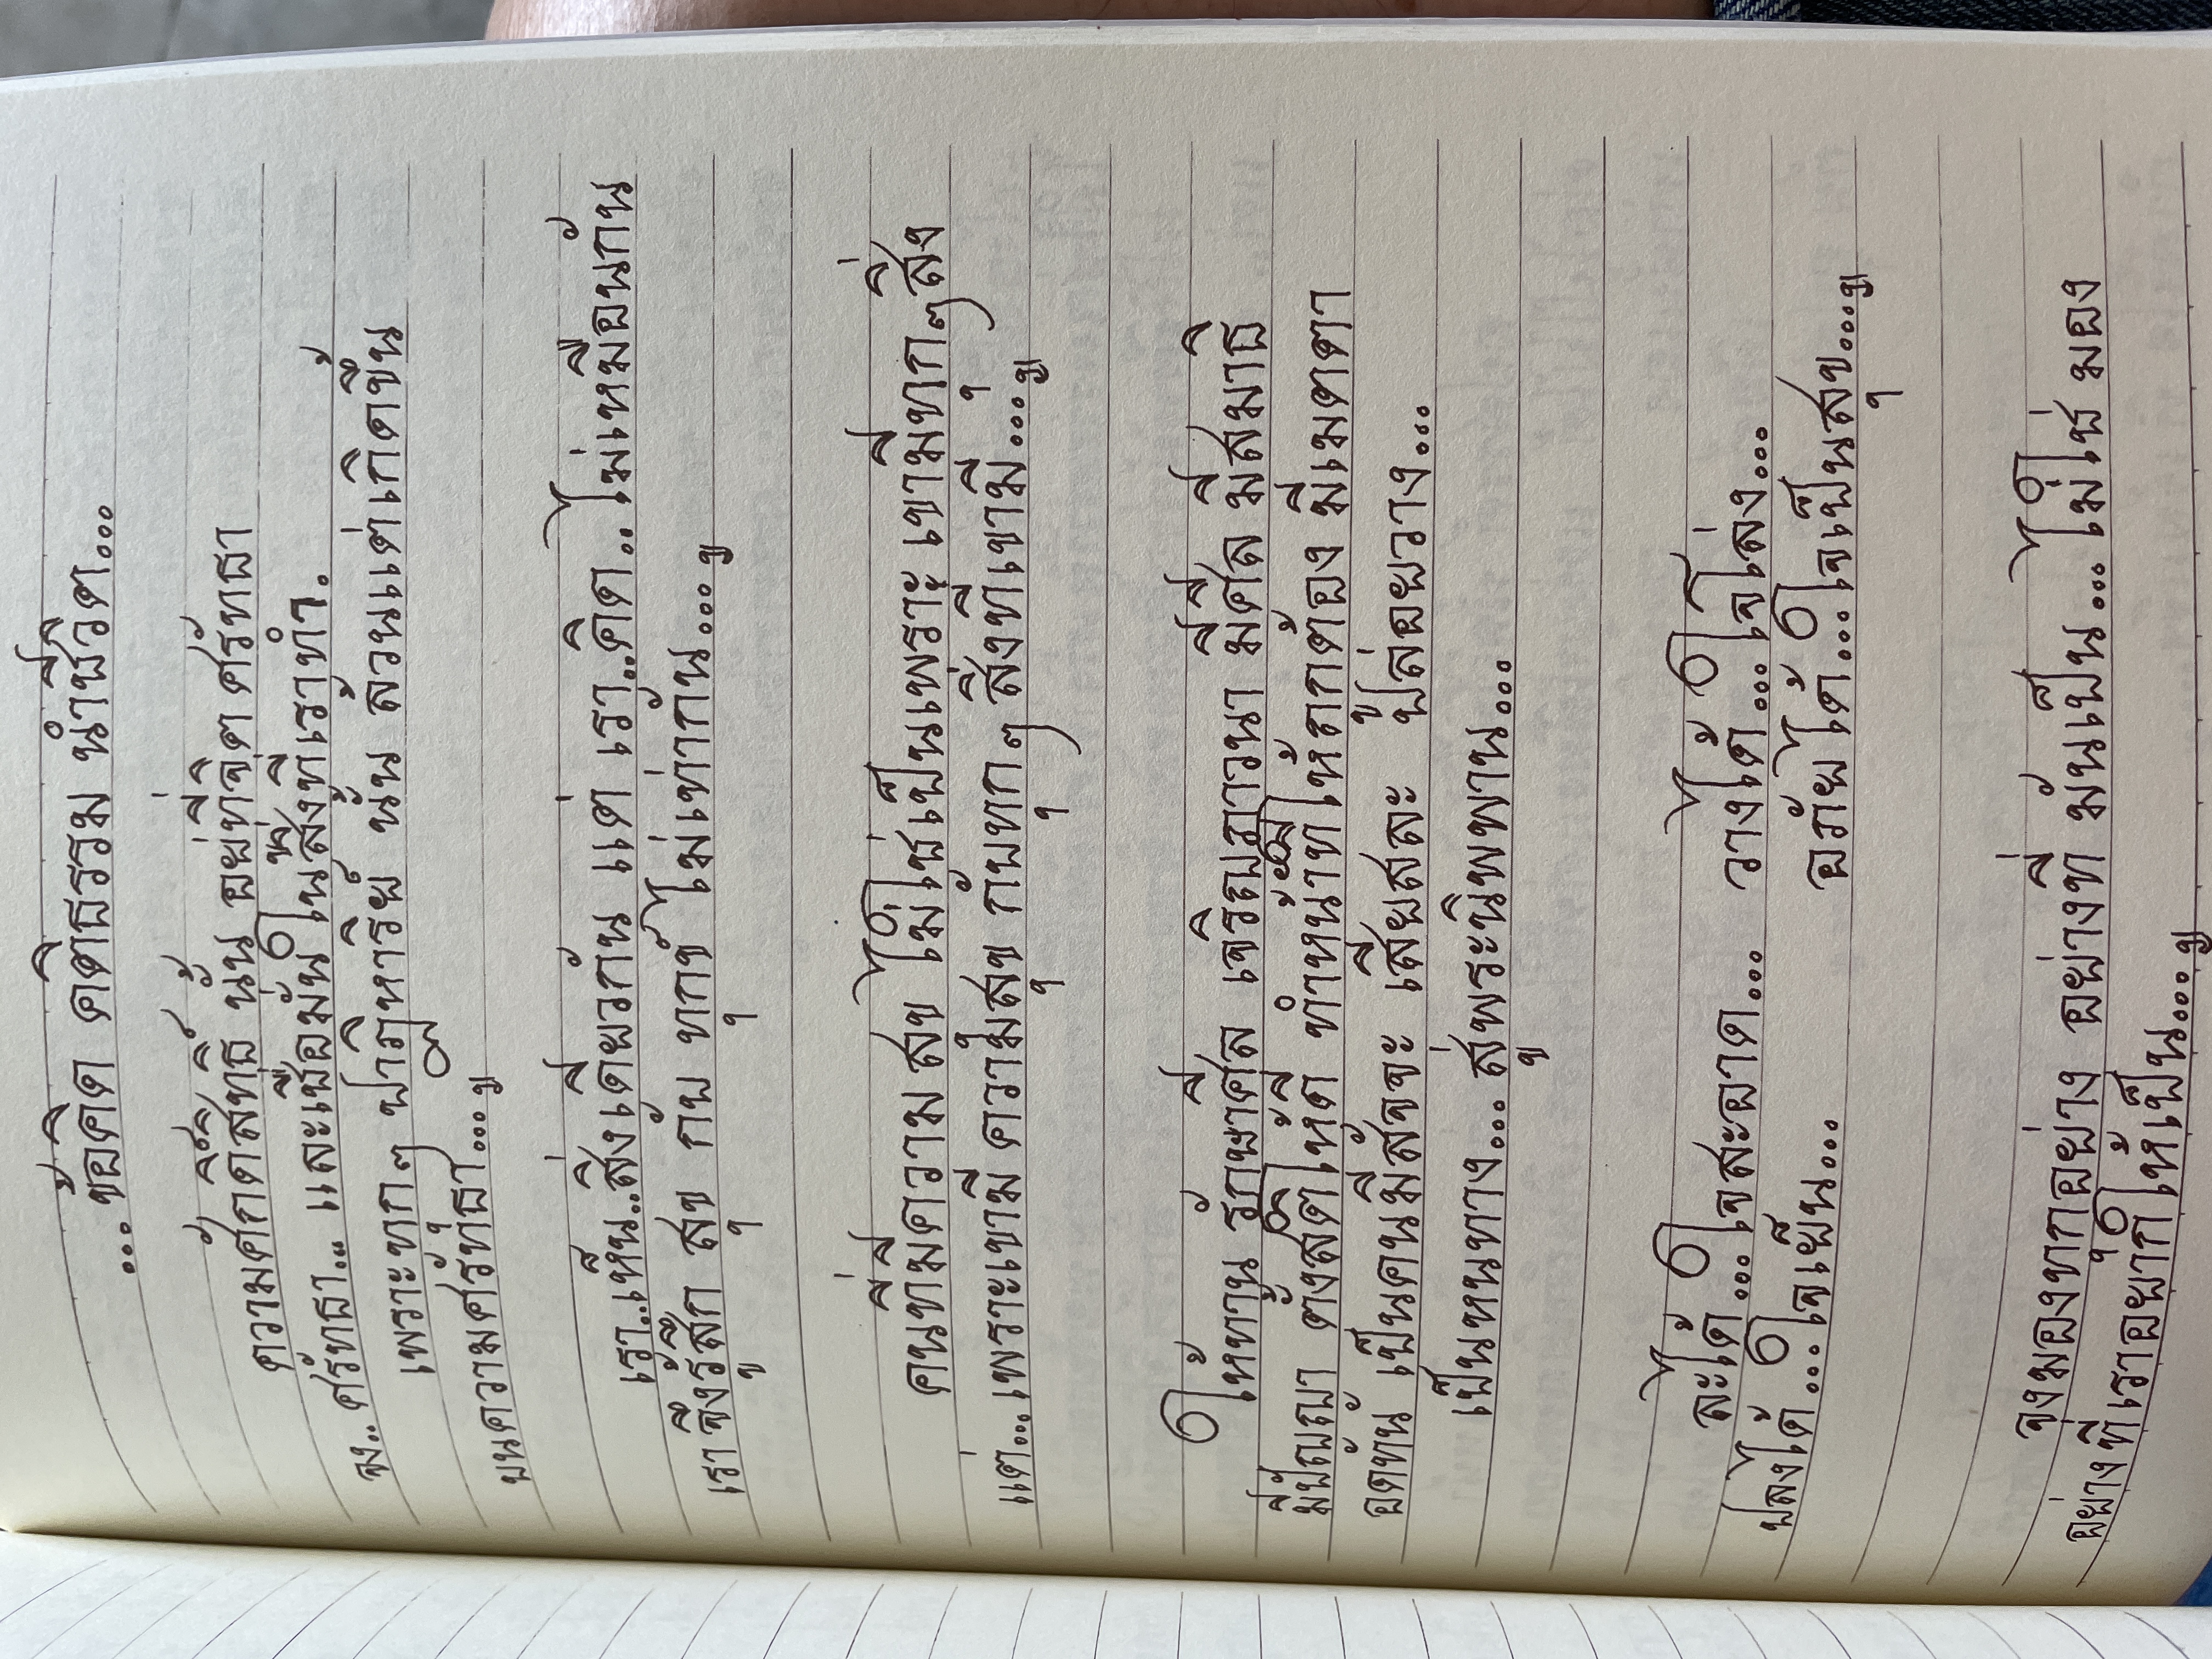 ...ข้อคิด คติธรรม นำชีวิต...
ความศักดิ์สิทธิ์ นั้น อยู่ที่จิตศรัทธา
ศรัทธา.. และเชื่อมั่น ในสิ่งที่เราทำ.
เพราะทุกๆ ปาฏิหาริย์ นั้น ล้วนแต่เกิดขึ้น
บนความศรัทธา....ๆ
เรา..เห็น..สิ่งเดียวกัน แต่ เรา..คิด.. ไม่เหมือนกัน
เราจึงรู้สึก สุข กับ ทุกข์ ไม่เท่ากัน....ๆ
คนที่มีความ สุข ไม่ใช่เป็นเพราะ เขามีทุกๆสิ่ง
แต่...เพราะเขามี ความสุข กับทุกๆ สิ่งที่เขามี....ๆ
ให้ทาน รักษาศีล เจริญภาวนา มีศีล มีสมาธิ
มีปัญญา ตั้งสติให้ดี ทำหน้าที่ให้ถูกต้อง มีเมตตา
อดทน เป็นคนมีสัจจะ เสียสละ ปล่อยวาง...
เป็นหนทาง... สู่พระนิพพาน...
ละได้...ใจสะอาด... วางได้...ใจโล่ง...
ปลงได้...ใจเย็น... อภัยได้...ใจเป็นสุข....ๆ
จงมองทุกอย่าง อย่างที่ มันเป็น... ไม่ใช่ มอง
อย่างที่เราอยากให้เป็น....ๆ